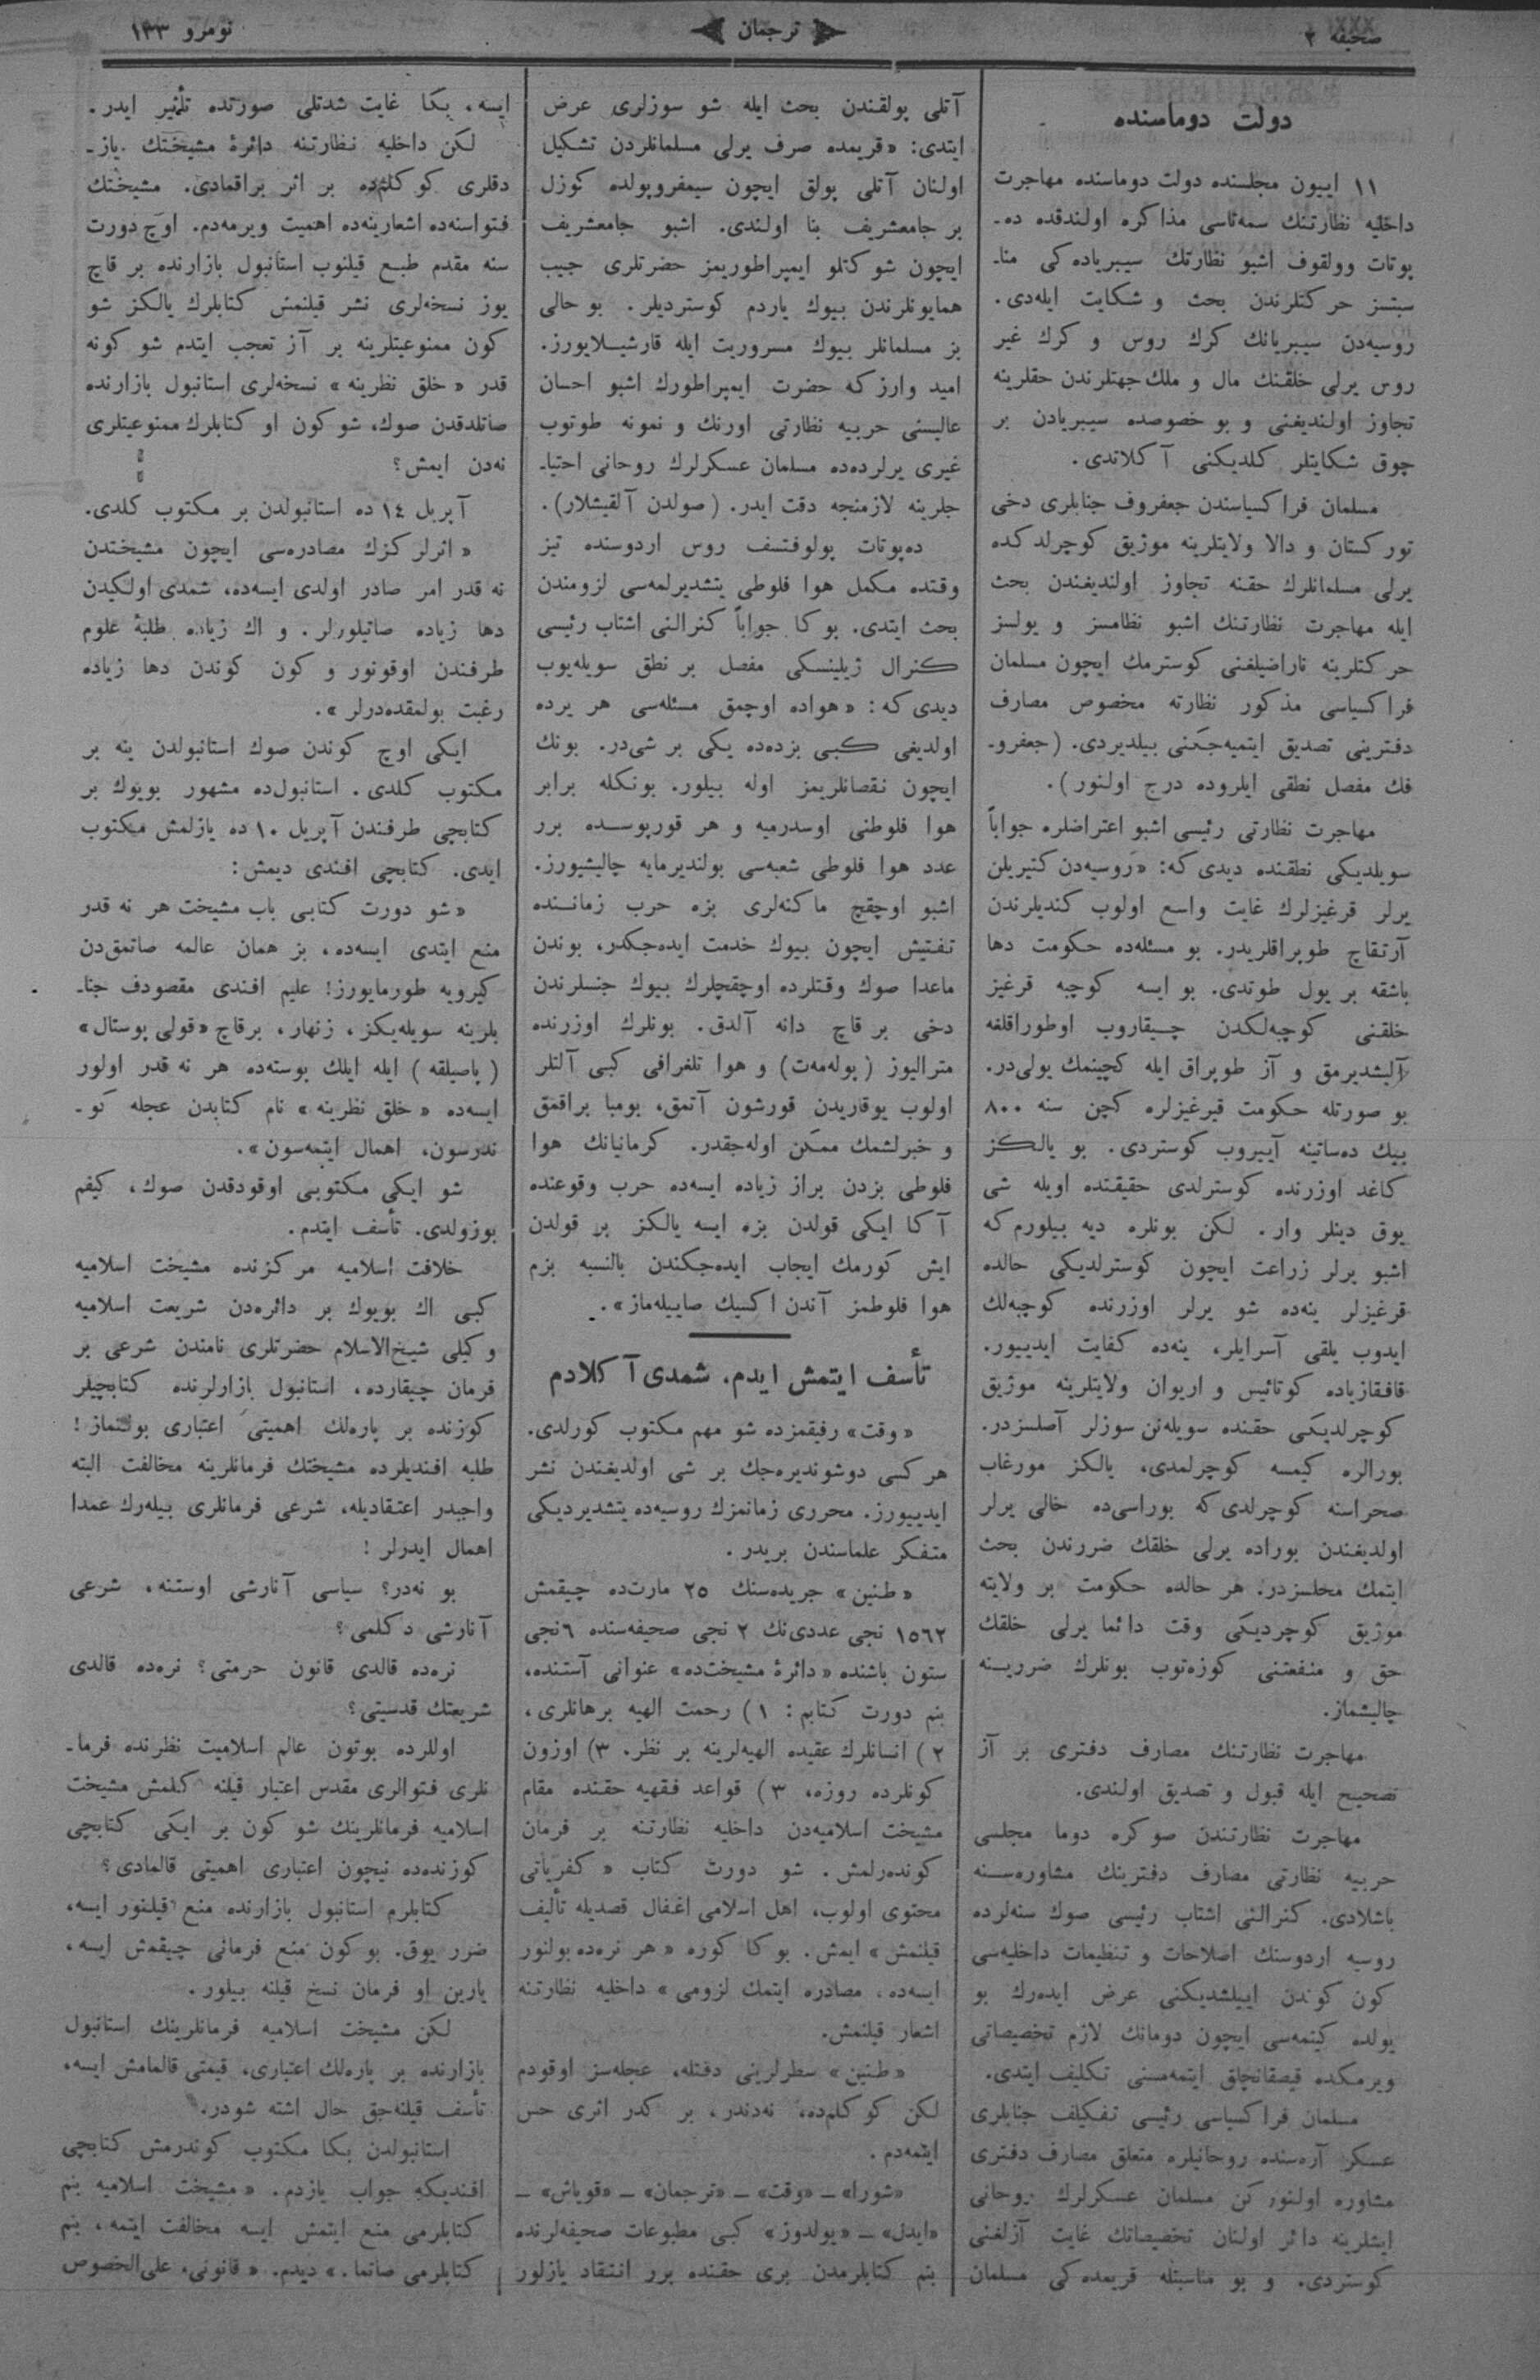 صحیفه ٢
ترجمان
نومرو ١٣٣
دولت دوماسنده
١١ اییون مجلسنده دولت دوماسنده مهاجرت
داخلیه نظارتنك سمه‌تاسی مذاكره اولندقده ده‌ـ
پوتات وولقوف اشبو نظارتك سیبریاده‌كی منا‌ـ
سبتسز حركتلرندن بحث و شكایت ایله‌دی.
روسیه‌دن سیبریانك كرك روس و كرك غیر
روس یرلی خلقنك مال و ملك جهتلرندن حقلرینه
تجاوز اولندیغنی و بو خصوصده سیبریادن بر
چوق شكایتلر كلدیكنی آكلاتدی.
مسلمان فراكسیاسندن جعفروف جنابلری دخی
توركستان و دالا ولایتلرینه موژیق كوچرلدكده
یرلی مسلمانلرك حقنه تجاوز اولندیغندن بحث
ایله مهاجرت نظارتنك اشبو نظامسز و یولسز
حركتلرینه ناراضیلغنی كوسترمك ایچون مسلمان
فراكسیاسی مذكور نظارته مخصوص مصارف
دفترینی تصدیق ایتمیه‌جكنی بیلدیردی. (جعفروـ
فك مفصل نطقی ایلروده درج اولنور).
مهاجرت نظارتی رئیسی اشبو اعتراضلره جواباً
سویلدیكی نطقنده دیدی كه: «روسیه‌دن كتیریلن
یرلر قرغیزلرك غایت واسع اولوب كندیلرندن
آرتقاچ طوپراقلریدر. بو مسئله‌ده حكومت دها
باشقه بر یول طوتدی. بو ایسه كوچبه قرغیز
خلقنی كوچبه‌لكدن چیقاروب اوطوراقلغه
آلیشدیرمق و آز طوپراق ایله كچینمك یولی‌در.
بو صورتله حكومت قیرغیزلره كچن سنه ٨٠٠
بیك ده‌ساتینه آییروب كوستردی. بو یالكز
كاغد اوزرنده كوسترلدی حقیقتده اویله شی
یوق دینلر وار. لكن بونلره دیه بیلورم كه
اشبو یرلر زراعت ایچون كوسترلدیكی حالده
قرغیزلر ینه‌ده شو یرلر اوزرنده كوچبه‌لك
ایدوب یلقی آسرایلر، ینه‌ده كفایت ایدییور.
قافقازیاده كوتائیس و اریوان ولایتلرینه موژیق
كوچرلدیكی حقنده سویله‌نن سوزلر آصلسزدر.
بورالره كیمسه كوچرلمدی، یالكز مورغاب
صحراسنه كوچرلدی كه بوراسی‌ده خالی یرلر
اولدیغندن بوراده یرلی خلقك ضررندن بحث
ایتمك محلسزدر. هر حالده حكومت بر ولایته
موژیق كوچردیكی وقت دائما یرلی خلقك
حق و منفعتنی كوزه‌توب بونلرك ضررینه
چالیشماز.
مهاجرت نظارتنك مصارف دفتری بر آز
تصحیح ایله قبول و تصدیق اولندی.
مهاجرت نظارتندن صوكره دوما مجلسی
حربیه نظارتی مصارف دفترینك مشاوره‌سنه
باشلادی. كنرالنی اشتاب رئیسی صوك سنه‌لرده
روسیه اردوسنك اصلاحات و تنظیمات داخلیه‌سی
كون كوندن اییلشدیكنی عرض ایده‌رك بو
یولده كیتمه‌سی ایچون دومانك لازم تخصیصاتی
ویرمكده قیصقانچلق ایتمه‌مسنی تكلیف ایتدی.
مسلمان فراكسیاسی رئیسی تفكیلف جنابلری
عسكر آره‌سنده روحانیلره متعلق مصارف دفتری
مشاوره اولنور كن مسلمان عسكرلرك روحانی
ایشلرینه دائر اولنان تخصیصاتك غایت آزلغنی
كوستردی. و بو مناسبتله قریمده‌كی مسلمان
آتلی پولقندن بحث ایله شو سوزلری عرض
ایتدی: «قریمده صرف یرلی مسلمانلردن تشكیل
اولنان آتلی پولق ایچون سیمفروپولده كوزل
بر جامعشریف بنا اولندی. اشبو جامعشریف
ایچون شوكتلو ایمپراطوریمز حضرتلری جیب
همایونلرندن بیوك یاردم كوستردیلر. بو حالی
بز مسلمانلر بیوك مسروریت ایله قارشیلایورز.
امید وارز كه حضرت ایمپراطورك اشبو احسان
عالیسنی حربیه نظارتی اورنك و نمونه طوتوب
غیری یرلرده‌ده مسلمان عسكرلرك روحانی احتیاـ
جلرینه لازمنجه دقت ایدر. (صولدن آلقیشلار).
ده‌پوتات پولوفتسف روس اردوسنده تیز
وقتده مكمل هوا فلوطی یتشدیرلمه‌سی لزومندن
بحث ایتدی. بوكا جواباً كنرالنی اشتاب رئیسی
كنرال ژیلینسكی مفصل بر نطق سویله‌یوب
دیدی كه: «هواده اوچمق مسئله‌سی هر یرده
اولدیغی كبی بزده‌ده یكی بر شی‌در. بونك
ایچون نقصانلریمز اوله بیلور. بونكله برابر
هوا فلوطنی اوسدرمیه و هر قورپوسده برر
عدد هوا فلوطی شعبه‌سی بولندیرمایه چالیشیورز.
اشبو اوچقچ ماكنه‌لری بزه حرب زماننده
تفتیش ایچون بیوك خدمت ایده‌جكدر، بوندن
ماعدا صوك وقتلرده اوچقچلرك بیوك جنسلرندن
دخی بر قاچ دانه آلدق. بونلرك اوزرنده
مترالیوز (پوله‌مه‌ت) و هوا تلغرافی كبی آلتلر
اولوب یوقاریدن قورشون آتمق، بومبا براقمق
و خبرلشمك ممكن اوله‌جقدر. كرمانیانك هوا
فلوطی بزدن براز زیاده ایسه‌ده حرب وقوعنده
آكا ایكی قولدن بزه ایسه یالكز بر قولدن
ایش كورمك ایجاب ایده‌جكندن بالنسبه بزم
هوا فلوطمز آندن اكسیك صاییله‌ماز».
تأسف ایتمش ایدم، شمدی آكلادم
«وقت» رفیقمزده شو مهم مكتوب كورلدی.
هر كسی دوشوندیره‌جك بر شی اولدیغندن نشر
ایدییورز. محرری زمانمزك روسیه‌ده یتشدیردیكی
متفكر علماسندن بریدر.
«طنین» جریده‌سنك ٢٥ مارت‌ده چیقمش
١٥٦٢ نجی عددی‌نك ٢ نجی صحیفه‌سنده ٦نجی
ستون باشنده «دائرۀ مشیخت‌ده» عنوانی آستنده،
بنم دورت كتابم: ١) رحمت الهیه برهانلری،
٢) انسانلرك عقیده الهیه‌لرینه بر نظر. ٣) اوزون
كونلرده روزه، ٣) قواعد فقهیه حقنده مقام
مشیخت اسلامیه‌دن داخلیه نظارتنه بر فرمان
كونده‌رلمش. شو دورت كتاب «كفریاتی
محتوی اولوب، اهل اسلامی اغفال قصدیله تألیف
قیلنمش» ایمش. بوكا كوره «هر نره‌ده بولنور
ایسه‌ده، مصادره ایتمك لزومی» داخلیه نظارتنه
اشعار قیلنمش.
«طنین» سطرلرینی دقتله، عجله‌سز اوقودم
لكن كوكلم‌ده، نه‌دندر، بر كدر اثری حس
ایتمه‌دم.
«شورا» ــ «وقت» ــ «ترجمان» ــ «قویاش» ــ
«ایدل» ــ «یولدوز» كبی مطبوعات صحیفه‌لرنده
بنم كتابلرمدن بری حقنده برر انتقاد یازلور
ایسه، بكا غایت شدتلی صورتده تأثیر ایدر.
لكن داخلیه نظارتنه دائرۀ مشیختك یازـ
دقلری كوكلم‌ده بر اثر براقمادی. مشیختك
فتواسنه‌ده اشعارینه‌ده اهمیت ویرمه‌دم. اوچ دورت
سنه مقدم طبع قیلنوب استانبول بازارنده بر قاچ
یوز نسخه‌لری نشر قیلنمش كتابلرك یالكز شو
كون ممنوعیتلرینه بر آز تعجب ایتدم شو كونه
قدر «خلق نظرینه» نسخه‌لری استانبول بازارنده
صاتلدقدن صوك، شو كون او كتابلرك ممنوعیتلری
نه‌دن ایمش؟
آپریل ١٤ ده استانبولدن بر مكتوب كلدی.
«اثرلركزك مصادره‌سی ایچون مشیختدن
نه قدر امر صادر اولدی ایسه‌ده، شمدی اولكیدن
دها زیاده صاتیلورلر. و اك زیاده طلبۀ علوم
طرفندن اوقونور و كون كوندن دها زیاده
رغبت بولمقده‌درلر».
ایكی اوچ كوندن صوك استانبولدن ینه بر
مكتوب كلدی. استانبول‌ده مشهور بویوك بر
كتابچی طرفندن آپریل ١٠ ده یازلمش مكتوب
ایدی. كتابچی افندی دیمش:
«شو دورت كتابی باب مشیخت هر نه قدر
منع ایتدی ایسه‌ده، بز همان عالمه صاتمق‌دن
كیرویه طورمایورز! علیم افندی مقصودف جناـ
بلرینه سویله‌یكز، زنهار، برقاچ «قولی پوستال»
(پاصیلقه) ایله ایلك پوسته‌ده هر نه قدر اولور
ایسه‌ده «خلق نظرینه» نام كتابدن عجله كوـ
ندرسون، اهمال ایتمه‌سون».
شو ایكی مكتوبی اوقودقدن صوك، كیفم
بوزولدی. تأسف ایتدم.
خلافت اسلامیه مركزنده مشیخت اسلامیه
كبی اك بویوك بر دائره‌دن شریعت اسلامیه
وكیلی شیخ‌الاسلام حضرتلری نامندن شرعی بر
فرمان چیقارده، استانبول بازارلرنده كتابچیلر
كوزنده بر پاره‌لك اهمیتی اعتباری بولنماز!
طلبه افندیلرده مشیختك فرمانلرینه مخالفت البته
واجبدر اعتقادیله، شرعی فرمانلری بیله‌رك عمدا
اهمال ایدرلر!
بو نه‌در؟ سیاسی آنارشی اوستنه، شرعی
آنارشی دكلمی؟
نره‌ده قالدی قانون حرمتی؟ نره‌ده قالدی
شریعتك قدسیتی؟
اوللرده بوتون عالم اسلامیت نظرنده فرماـ
نلری فتوالری مقدس اعتبار قیلنه كلمش مشیخت
اسلامیه فرمانلرینك شو كون بر ایكی كتابچی
كوزنده‌ده نیچون اعتباری اهمیتی قالمادی؟
كتابلرم استانبول بازارنده منع قیلنور ایسه،
ضرر یوق. بو كون منع فرمانی چیقمش ایسه،
یارین او فرمان نسخ قیلنه بیلور.
لكن مشیخت اسلامیه فرمانلرینك استانبول
بازارنده بر پاره‌لك اعتباری، قیمتی قالمامش ایسه،
تأسف قیلنه‌جق حال اشته شودر.
استانبولدن بكا مكتوب كوندرمش كتابچی
افندیكه جواب یازدم. «مشیخت اسلامیه بنم
كتابلرمی منع ایتمش ایسه مخالفت ایتمه، بنم
كتابلرمی صاتما.» دیدم. «قانونی، علی‌الخصوص